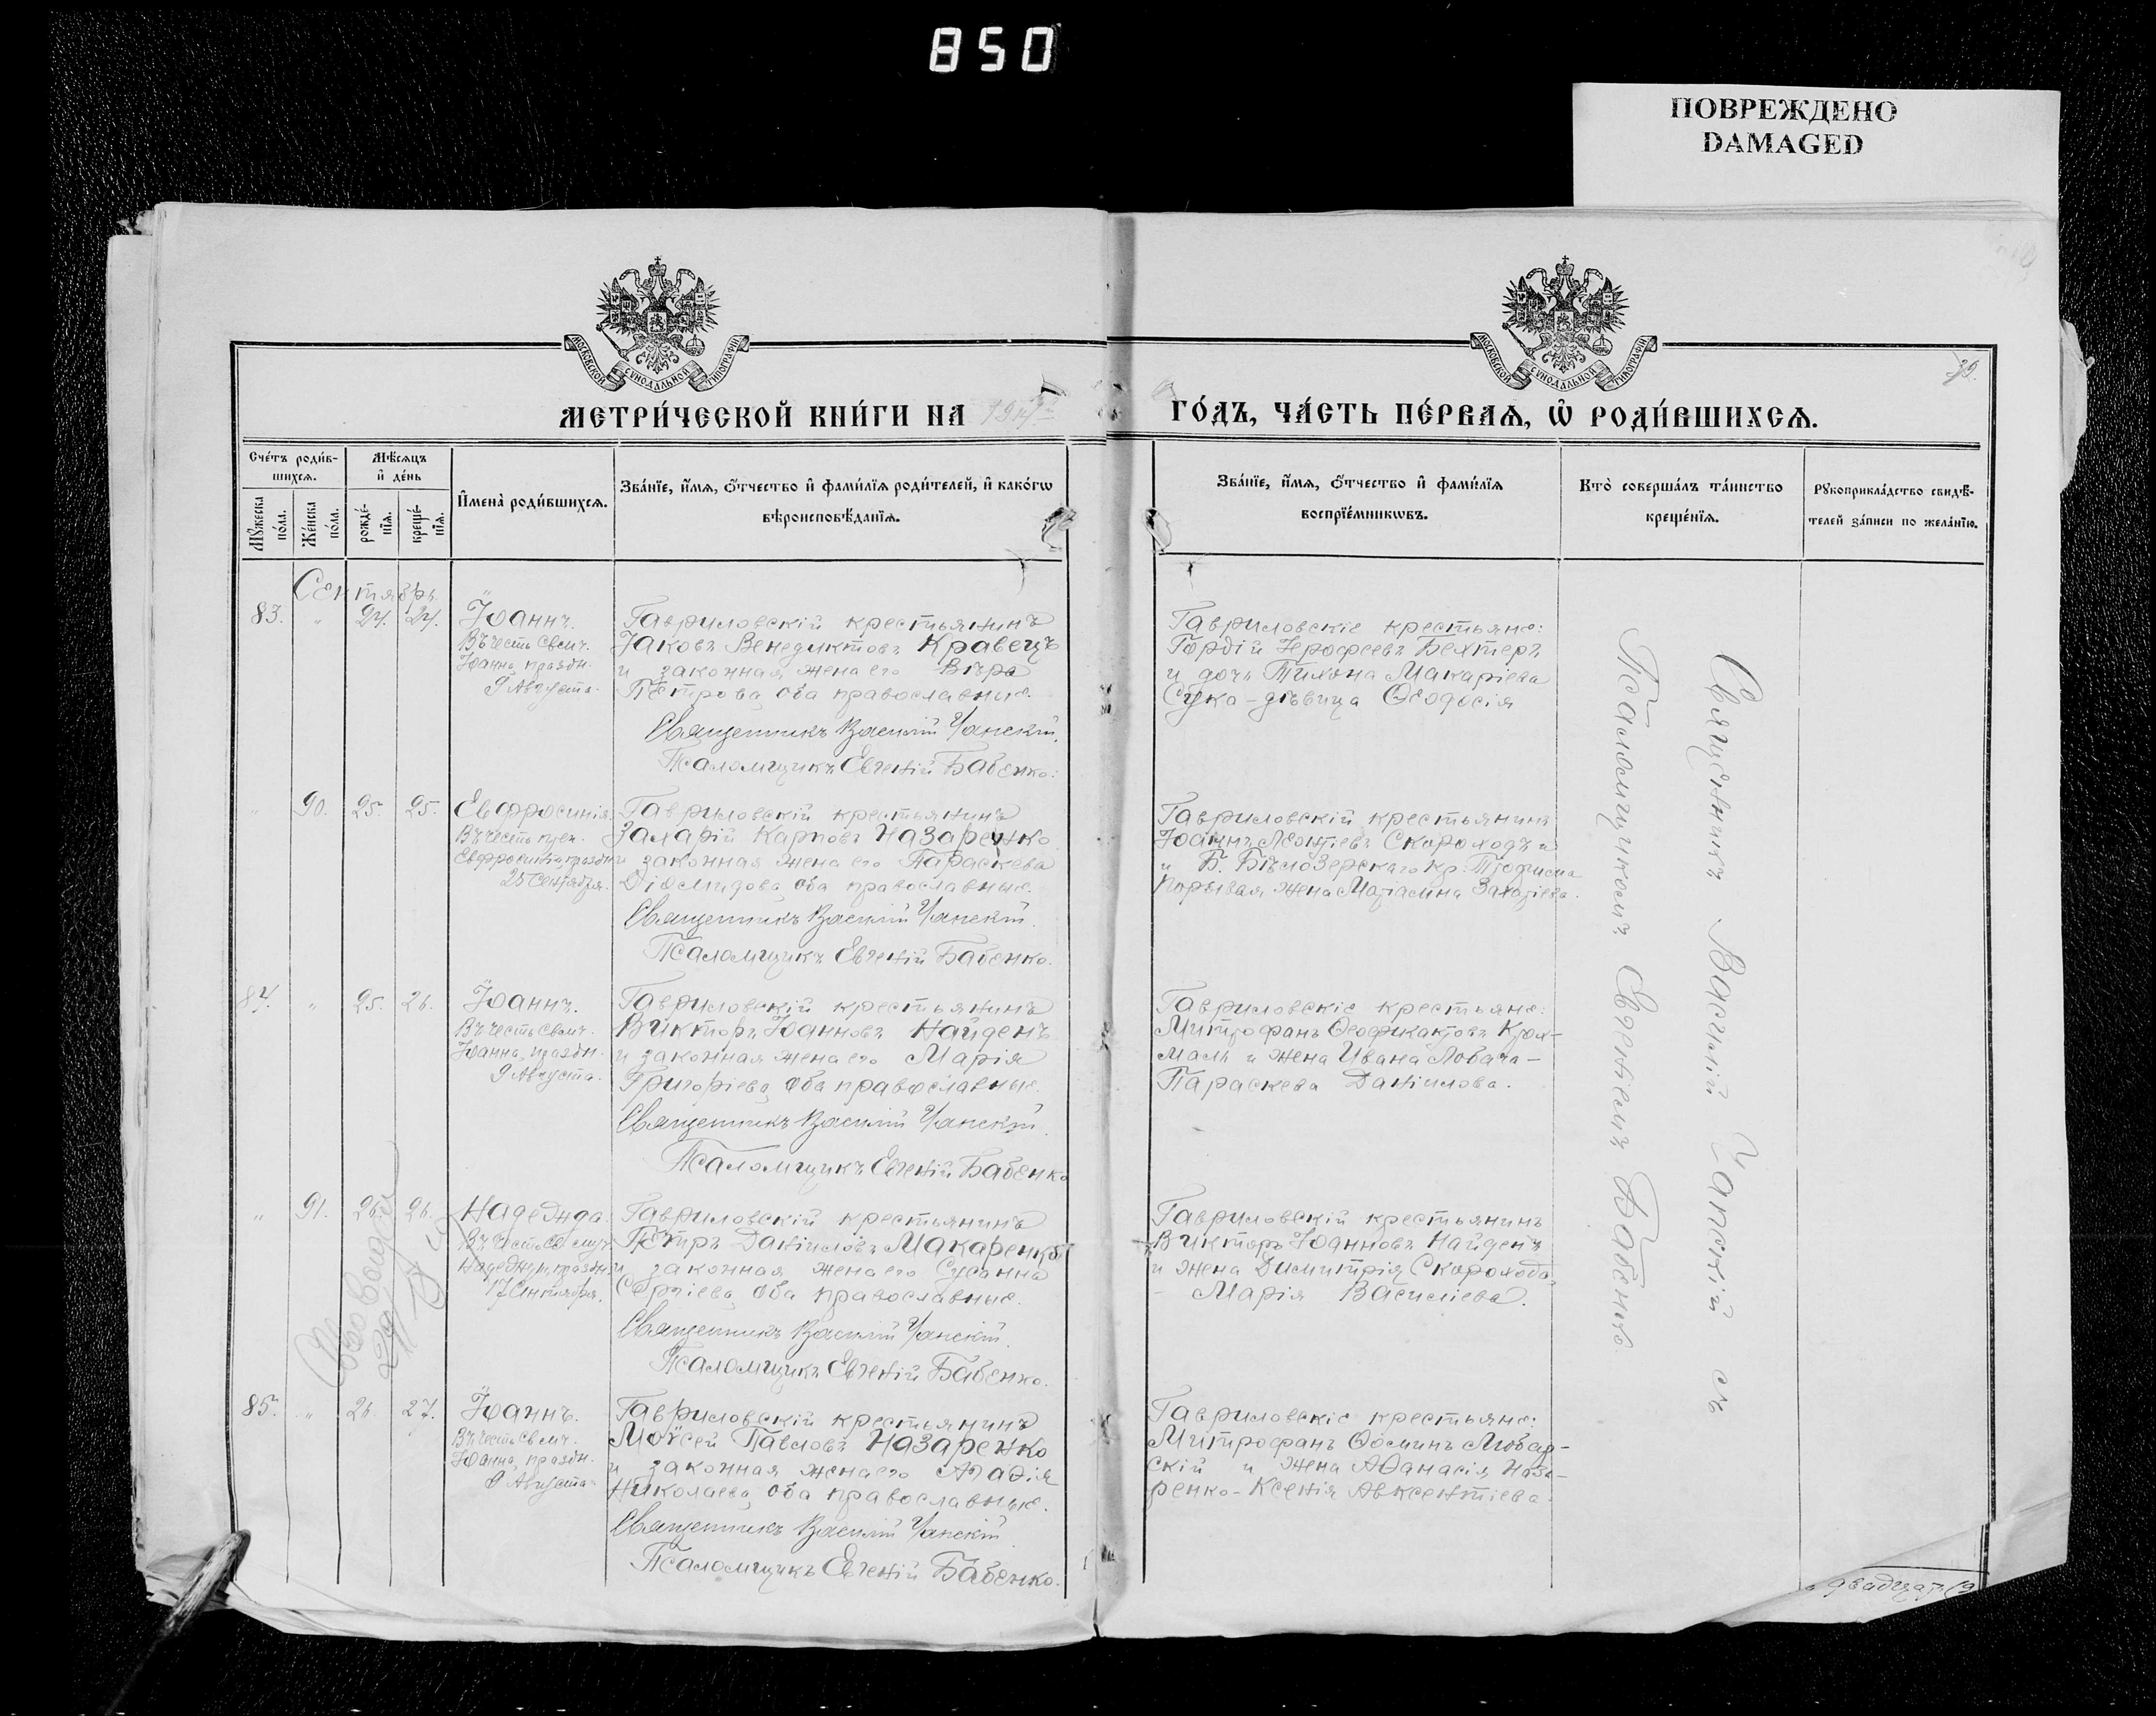 850
ПОВРЕЖДЕНО
DAMAGED
МОСКОВСКОЙ СѴНОДАЛЬНОЙ ТИПОГРАФІИ
МОСКОВСКОЙ СѴНОДАЛЬНОЙ ТИПОГРАФІИ
МЕТРИ́ЧЕСКОЙ КНИ́ГИ НА
ГО́ДЪ, ЧА́СТЬ ПЕ́РВАѦ, Ѡ҆ РОДИ́ВШИХСѦ.
Сче́тъ роди́в-
шихсѧ.
Мѣ́сѧцъ
и҆ де́нь
Мꙋ́жеска
по́ла.
Же́нска
по́ла.
рожде́-
нїѧ.
креще́-
нїѧ.
И҆мена̀ роди́вшихсѧ.
Зва́нїе, и҆́мѧ, ѻ҆́тчество и҆ фами́лїѧ роди́телей, и҆ како́гѡ
вѣроисповѣ́данїѧ.
Зва́нїе, и҆́мѧ, ѻ҆́тчество и҆ фами́лїѧ
воспрїе́мникѡвъ.
Кто̀ соверша́лъ та́инство
креще́нїѧ.
Рꙋкоприкла́дство свидѣ́-
телей за́писи по жела́нїю.
Сентябрь
83. " 24. 24. Іоаннъ.
Въ честь Свмч.
Іоанна, праздн.
9 Августа.
Гавриловскій крестьянинъ
Іаковъ Венедиктовъ Кравецъ
и законная жена его Вѣра
Петрова, оба православные.
Священникъ Василій Чанскій.
Псаломщикъ Евгеній Бабенко.
Гавриловскіе крестьяне:
Гордій Іерофеевъ Бехтеръ
и дочь Тихона Макаріева
Сука - дѣвица Ѳеодосія
" 90. 25. 25. Евфросинія.
Въ честь прен.
Евфросиніи, праздн.
25 Сентября.
Гавриловскій крестьянинъ
Захарій Карповъ Назаренко
и законная жена его Параскева
Діомидова, оба православные.
Священникъ Василій Чанскій.
Псаломщикъ Евгеній Бабенко.
Гавриловскій крестьянинъ
Іоаннъ Леонтіевъ Скороходъ и
Б. Бѣлозерскаго кр. Трофима
жена Захаріева.
84. " 25. 26. Іоаннъ.
Въ честь Свмч.
Іоанна, праздн.
9 Августа.
Гавриловскій крестьянинъ
Викторъ Іоанновъ Найденъ
и законная жена его Марія
Григоріева, оба православные.
Священникъ Василій Чанскій.
Псаломщикъ Евгеній Бабенко
Гавриловскіе крестьяне:
Митрофанъ Ѳеофилактовъ Крох-
маль и жена Ивана Лобача -
Параскева Даніилова.
" 91. 26. 26. Надежда.
Въ честь Св. муч.
Надежды, праздн.
17 Сентября.
Гавриловскій крестьянинъ
Петръ Данииловъ Макаренко
и законная жена его Сусанна
Сергіева, оба православные.
Священникъ Василій Чанскій.
Псаломщикъ Евгеній Бабенко.
Гавриловскій крестьянинъ
Викторъ Іоанновъ Найденъ
и жена Димитрія Скорохода,
- Марія Василіева.
85. " 26. 27. Іоаннъ.
Въ честь Свмч.
Іоанна, праздн.
9 Августа.
Гавриловскій крестьянинъ
Моѵсей Павловъ Назаренко
и законная жена его Агаѳія
Николаева, оба православные.
Священникъ Василій Чанскій.
Псаломщикъ Евгеній Бабенко.
Гавриловскіе крестьяне:
Митрофанъ Ѳоминъ Любар-
скій и жена Аѳанасія Наза-
ренко - Ксенія Авксентіева.
Священникъ Василій Чанскій съ
Псаломщикомъ Евгеніемъ Бабенко